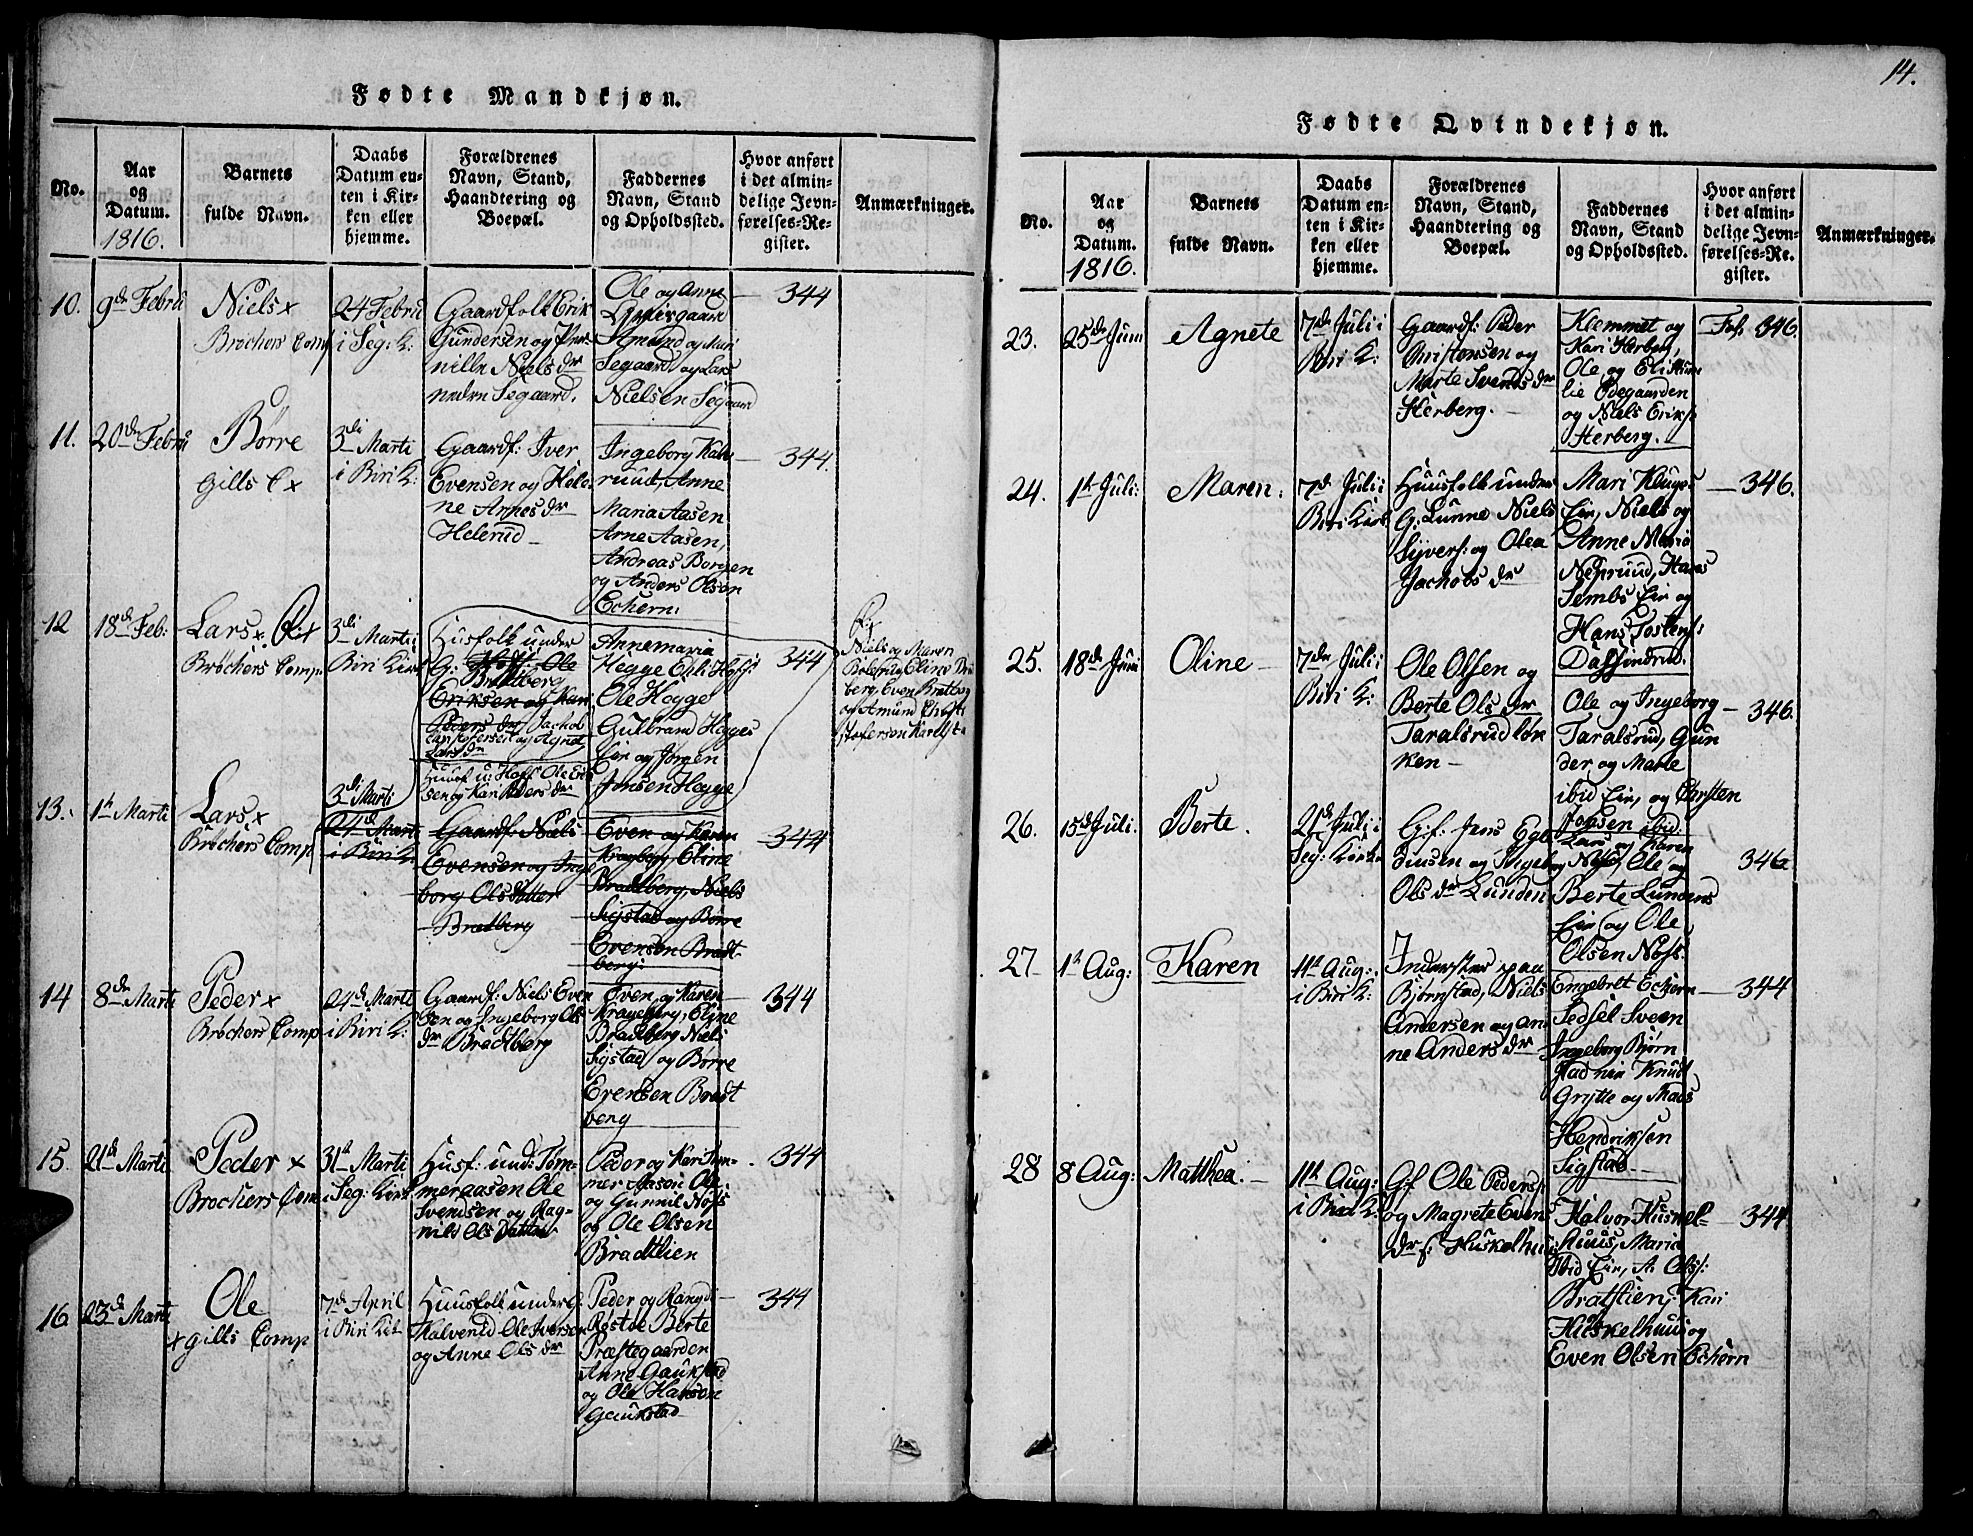 Fødte Mandkjøn.
No.
Aar
og
Datum.
1816.
Barnets
fulde Navn.
Daabs
Datum en-
ten i Kir-
ken eller
hjemme.
Forældrenes
Navn, Stand,
Haandtering og
Boepæl.
Faddernes
Navn, Stand
og Opholdssted.
Hvor anført
i det almin-
delige Jevn-
førelses-Re-
gister.
Anmærkninger.
10.
9de Febru
Niels x
Bröchers Comp
24 Febru
i Seg: K:
Gaardfolk Erik
Gundersen og Per-
nille Niels dr
nedre Segaard.
Ole og Anne
Amund og Mari
Segaard og Lars
Nielsen Segaard
344
11.
20de Febru
Børre
Gills C x
3di Marti
i Biri K:
Gaardf: Iver
Evensen og Hele-
ne Arnes dr
Helerud
Ingeborg Kal-
ruud, Anne
Maria Aasen
Arne Aasen,
Andreas Borgen
og Anders Olsen
Echern:
344.
12
18de Feb:
Lars x
Bröchers Comp
3di Marti i
Biri Kirk
Husfolk under
G: Hoff: Ole
Bradtberg
Eriksen og Kari
Peders dr Jachob
Christophersen og Agnet
Lars dr
Annemaria
Hegge
Ole Hegge
Gulbrand Hegges
Eie og Jørgen
Jensen Hegge
344
Niels og Maren
berg, Even Bratberg
og Amund Christ-
stofersen
13.
1te Marti
Lars x
Bröchers Comp
3di Marti
24de Marti
i Biri K:
Huusf: u: Hoff Ole Erik
sen og Kari Peders dr
Gaardf: Niels
Evensen og Inge
borg Olsdatter
Bradberg
Even og Karen
Krageberg, Eline
Bradtberg, Niels
Sigstad og Børre
Evensen Bradt-
berg:
344
14
8de Marti
Peder x
Bröchers Comp
24de Marti
i Biri K:
Gaardf: Niels Even
sen og Ingeborg Ols
dr Bradtberg
Even og Karen
Krageberg, Eline
Bradtberg Niels
Sigstad og Børre
Evensen Bradt
berg
344
15.
21de Marti
Peder x
Bröchers Com
31te Marti
i Seg: Kirk
Husf: und: Tøm-
meraasen Ole
Svendsen og Rag-
nild Ols Datter
Peder og Kari Tøm-
mer Aasen Ole
og Gunnil Nøss
og Ole Olsen
Bradtlien
344
16.
23de Marti
Ole
x Gills Comp
7de April
i Biri Kik
Huusfolk under G:
Kalverud Ole Iversen
og Anne Ols dr
Peder og Rangdi
Røstøe Berte
Præstegaarden
Anne Gaukstad
og Ole Hansen
Gaukstad
344
14.
Fødte Qvindekjøn.
No.
Aar
og
Datum.
1816.
Barnets
fulde Navn.
Daabs
Datum en-
ten i Kir-
ken eller
hjemme.
Forældrenes
Navn, Stand,
Haandtering og
Boepæl.
Faddernes
Navn, Stand
og Opholdssted.
Hvor anført
i det almin-
delige Jevn-
førelses-Re-
gister.
Anmærkninger.
23.
25de Juni
Agnete
7de Juli i
Biri K:
Gaardf: Peder
Christensen og
Marte Svends dr
Herberg.
Klemmet og
Kari Herberg,
Ole og Eli
lie Ødegaarden
og Niels Eriks:
Herberg.
Fol: 346.
24.
1te Juli:
Maren:
7de Juli i
Biri Kirk
Huusfolk under
G: Lunne Niels
Syvers: og Olea
Jachobs dr
Mari Kluges
Eie, Niels og
Anne Maria
Neprud, Hans
Sembs Eie og
Hans Tostens:
Dalsindrud.
346.
25.
18de Juni
Oline
7de Juli i
Biri K:
Ole Olsen og
Berte Ols dr
Taralsrudløn
ken
Ole og Ingeborg
Taralsrud, Gun
der og Marte
ibid Eie, og Carsten
Jonsen ibid.
346.
26.
15de Juli.
Berte.
21de Juli i
Seg: Kirke
G.f. Jens Ege
diusen og Ingeborg
Ols dr Lunden
Lars og Karen
Nøss, Ole og
Berte Lundens
Eie og Ole
Olsen Nøss.
346
27
1te Aug:
Karen
11te Aug:
i Biri K:
Inderster paa
Bjørnstad, Niels
Andersen og An
ne Anders dr
Engebret Echern
Sedsel Sveen
Ingeborg Bjørn
stad nie Knud
Grytte og Mads
Hendriksen
Sigstad
344
28
8 Aug:
Matthea.
11te Aug:
i Biri K:
Gf Ole Peders:
og Magrete Evens
dr s: Huskelhuus
Halvor Huskel-
huus, Marie
Ibid Eie, A. Ols:
Bratstien, Kari
Huskelhuus og
Even Olsen Echern
344